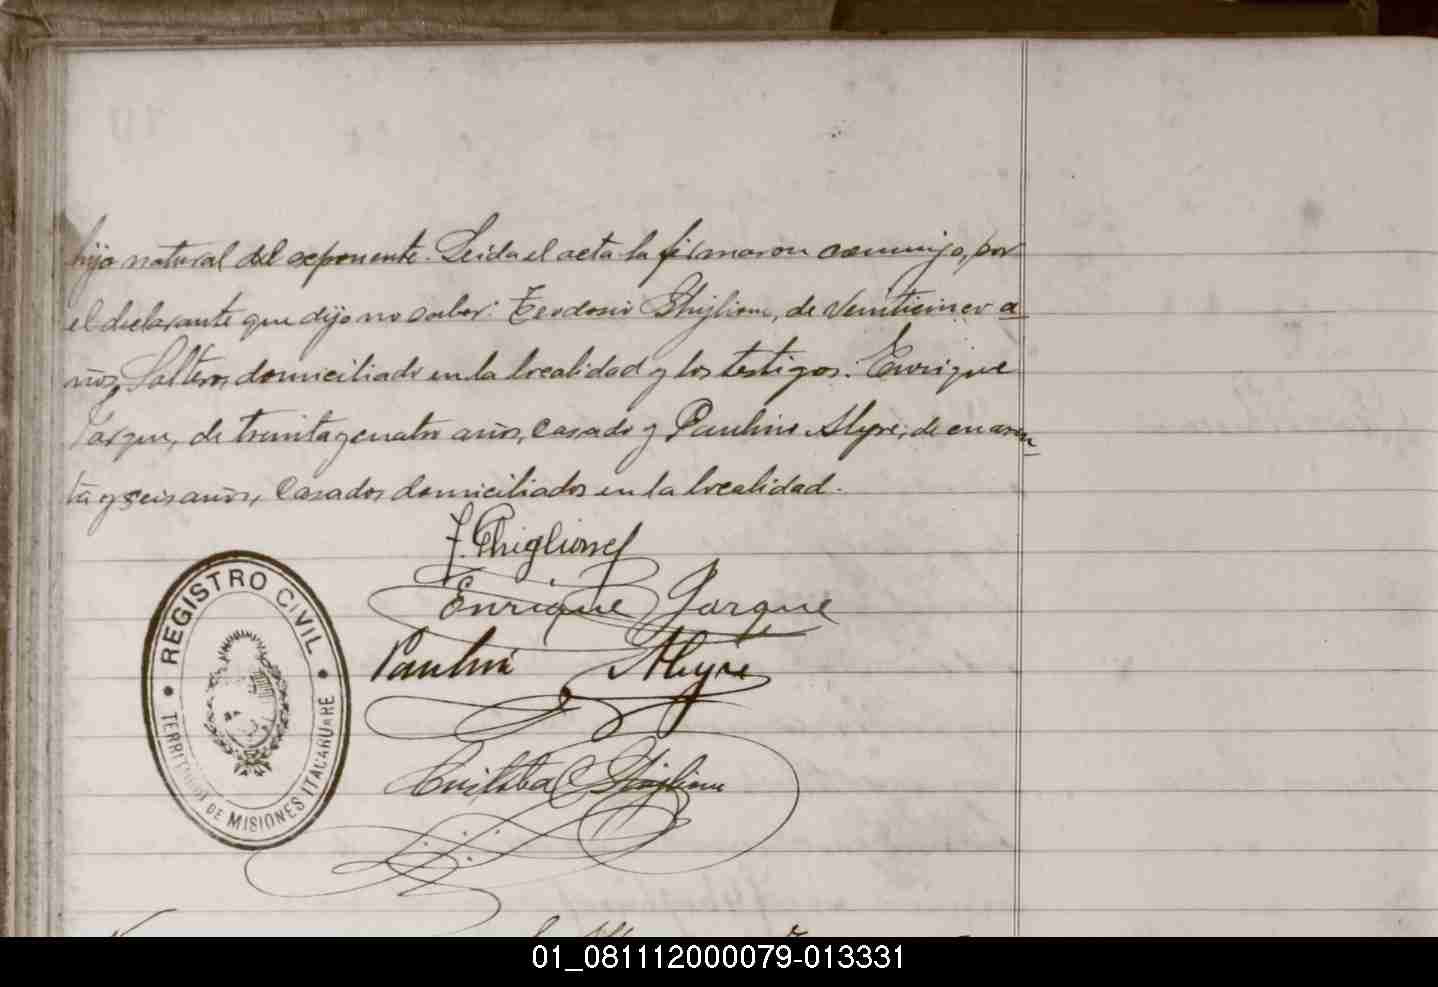 hijo natural del esponente. Leida el acta la firmaron conmigo, por
el declarante que dijo no saber: Teodosio Ghiglione, de veinticinco a
ños, Soltero, domiciliado en la localidad y los testigos: Enrique
Jarque, de treinta y cuatro años, casado y Paulino Aleyre, de cuaren
ta y seis años, Casados domiciliados en la localidad.
T. Ghiglione
Enrique Jarque
Paulino Aleyre
Ghiglione
REGISTRO CIVIL
TERRITORIO DE MISIONES ITACARUARE
01_081112000079-013331